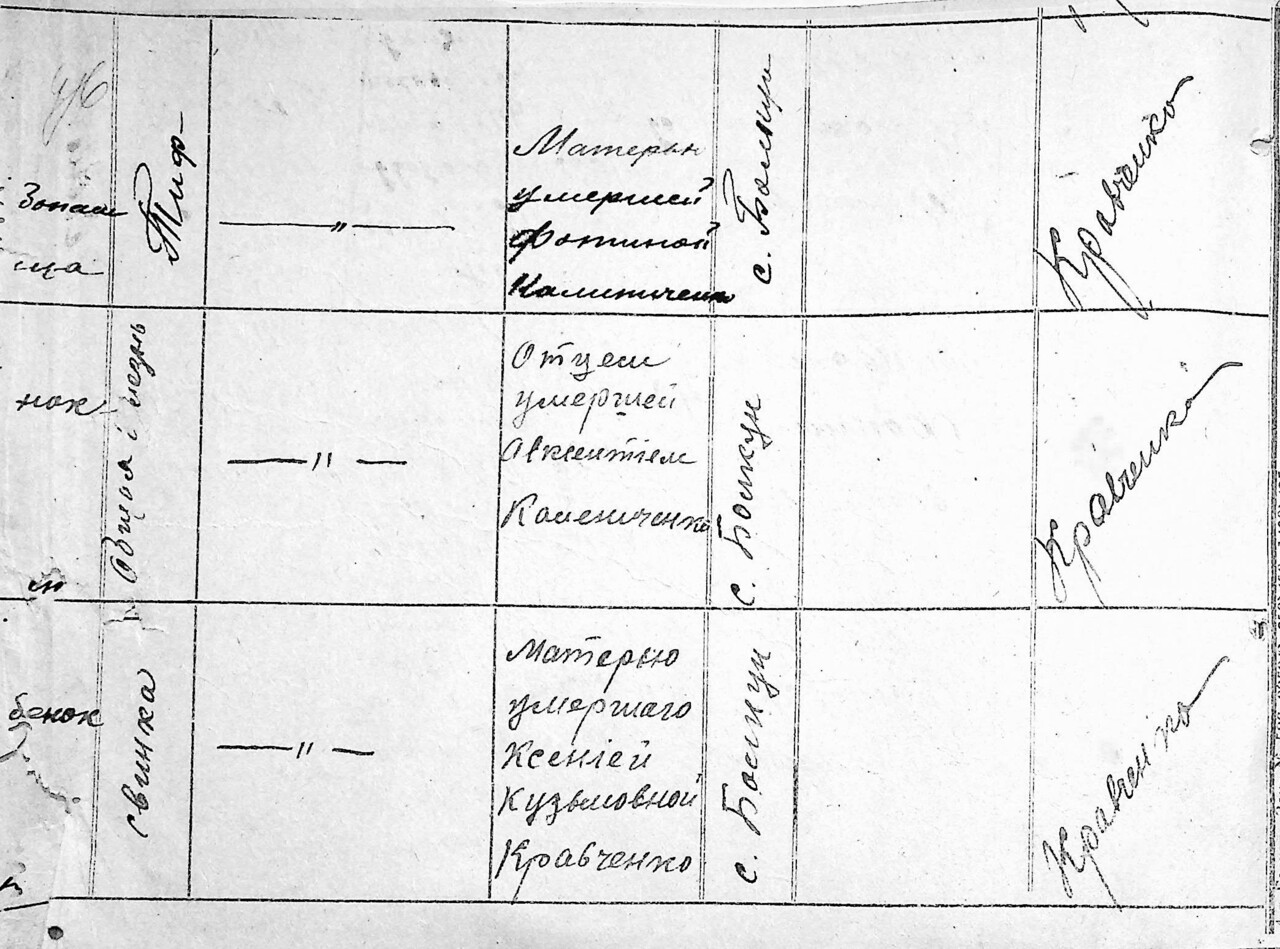 46
Тиф
Матерью
умершей
Фотиной
Калиниченко
с. Боскуи
Кравченко
нок
Общая
Отцем
умершей
Авкентіем
Калениченко
с. Боскуи
Кравченко
бенок
Свинка
Матерью
умершаго
Ксеніей
Кузьмовной
Кравченко
с. Боскуи
Кравченко